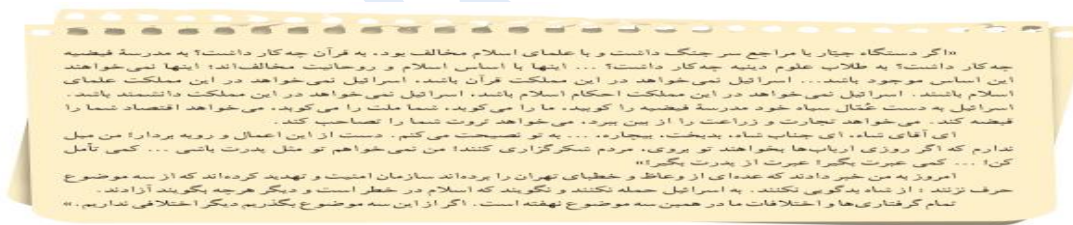 «اگر دستگاه جبّار با مراجع سر جنگ داشت و با علمای اسلام مخالف بود، به قرآن چه کار داشت؟ به مدرسهٔ فیضیه
چه‌کار داشت؟ به طلاب علوم دینیه چه‌کار داشت؟ ... اینها با اساس اسلام و روحانیت مخالف‌اند؛ اینها نمی‌خواهند
این اساس موجود باشد... اسرائیل نمی‌خواهد در این مملکت قرآن باشد، اسرائیل نمی‌خواهد در این مملکت علمای
اسلام باشند. اسرائیل نمی‌خواهد در این مملکت احکام اسلام باشد، اسرائیل نمی‌خواهد در این مملکت دانشمند باشد.
اسرائیل به دست عُمّال سیاه خود مدرسهٔ فیضیه را کوبید، ما را می‌کوبد، شما ملت را می‌کوبد، می‌خواهد اقتصاد شما را
قبضه کند. می‌خواهد تجارت و زراعت را از بین ببرد، می‌خواهد ثروت شما را تصاحب کند.
ای آقای شاه، ای جناب شاه، بدبخت، بیچاره، ... به تو نصیحت می‌کنم. دست از این اعمال و رویه بردار؛ من میل
ندارم که اگر روزی ارباب‌ها بخواهند تو بروی، مردم شکرگزاری کنند؛ من نمی‌خواهم تو مثل پدرت باشی ... کمی تأمل
کن؛ ... کمی عبرت بگیر؛ عبرت از پدرت بگیر!»
امروز به من خبر دادند که عده‌ای از وعاظ و خطبای تهران را برده‌اند سازمان امنیت و تهدید کرده‌اند که از سه موضوع
حرف نزنند : از شاه بدگویی نکنند، به اسرائیل حمله نکنند و نگویند که اسلام در خطر است و دیگر هرچه بگویند آزادند.
تمام گرفتاری‌ها و اختلافات ما در همین سه موضوع نهفته است. اگر از این سه موضوع بگذریم دیگر اختلافی نداریم.»